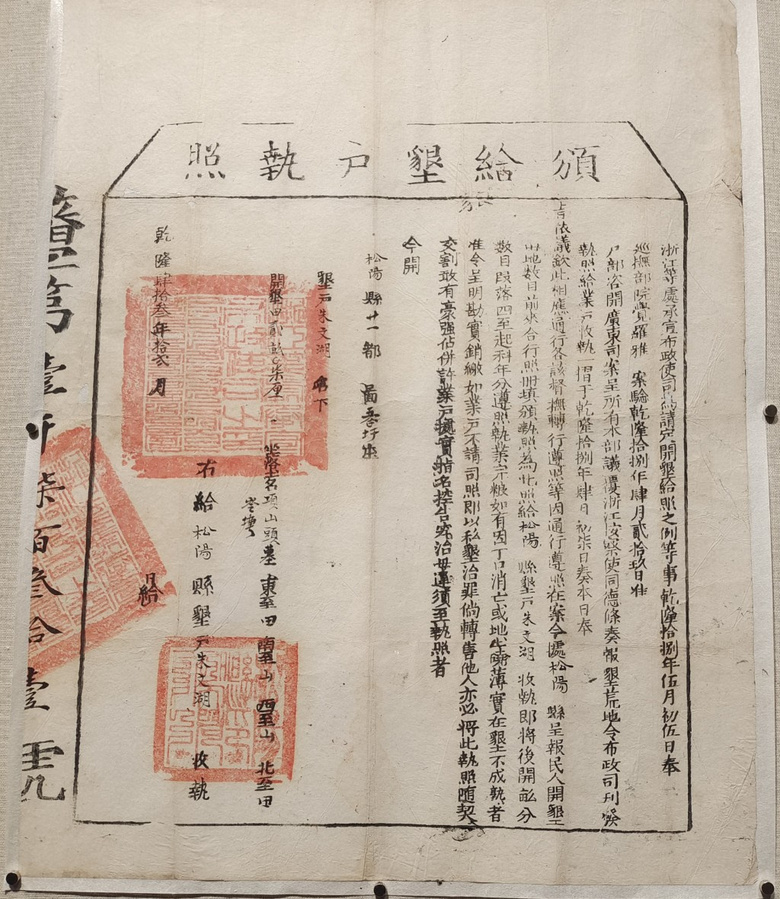 頒給墾戶執照
浙江等處承宣布政使司為請定開墾給照之例等事乾隆拾捌年伍月初伍日奉
巡撫部院覺羅雅 案驗乾隆拾捌年肆月貳拾玖日准
戶部咨開廣東司案呈所有本部議覆浙江按察使同德條奏報墾荒地令布政司刊發
執照給業戶收執一摺于乾隆拾捌年肆月初柒日奏本日奉
旨依議欽此相應通行各該督撫轉行遵照等因通行遵照在案今處松陽 縣呈報民人開墾
田地數目前來合行照冊填頒執照為此照給松陽 縣墾戶朱文湖 收執即將後開畝分
數目段落四至起科年分遵照執業完糧如有因丁口消亡或地土瘠薄實在墾不成熟者
准令呈明勘實銷繳如業戶不請司照即以私墾治罪倘轉售他人亦必將此執照隨契
交割敢有豪強佔併許業戶據實指名控告究治毋違須至執照者
今開
松陽 縣十一都 啚 坐
墾戶朱文湖 戶下
開墾田貳畝 柒厘 坐落土名項山頭 東至田 南至山 西至山 北至田
右給松陽 縣墾戶朱文湖 收執
乾隆肆拾叁年拾貳月 日給
第壹仟柒百叁拾壹號